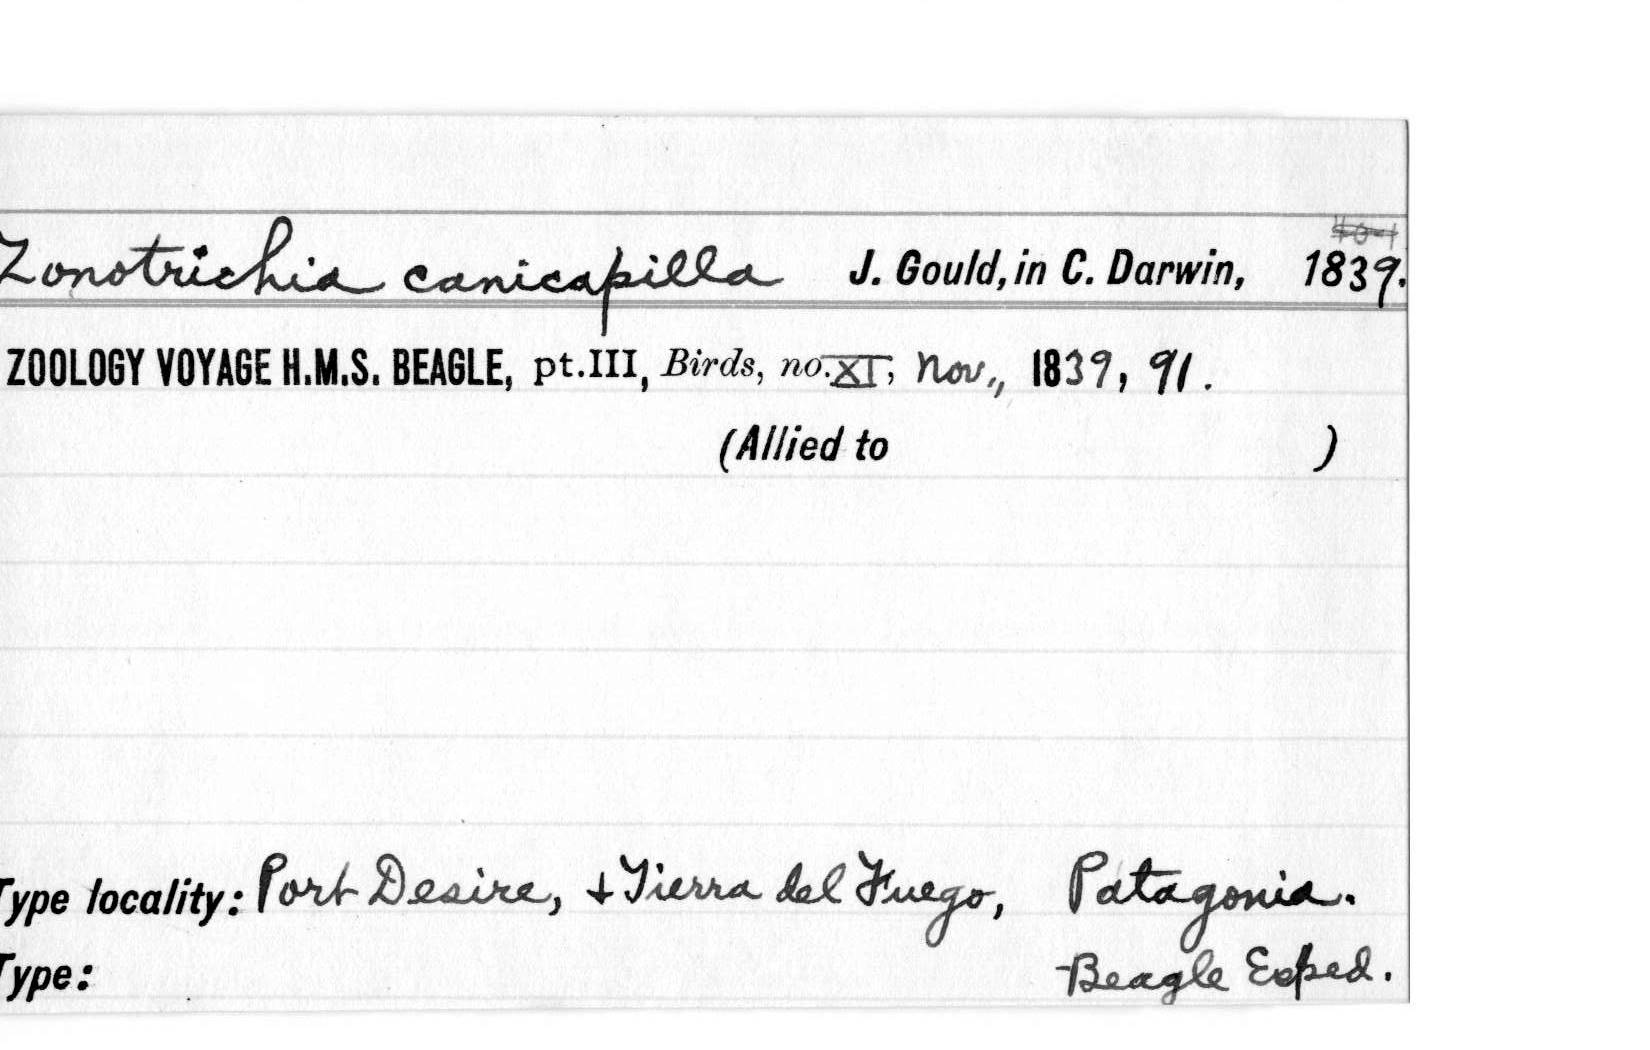 Zonotrichia canicapilla J. Gould, in C. Darwin, 1839.
ZOOLOGY VOYAGE H.M.S. BEAGLE, pt.III, Birds, no. XI, Nov., 1839, 91.
(Allied to )
Type locality: Port Desire, + Tierra del Fuego, Patagonia.
Type: Beagle Exped.